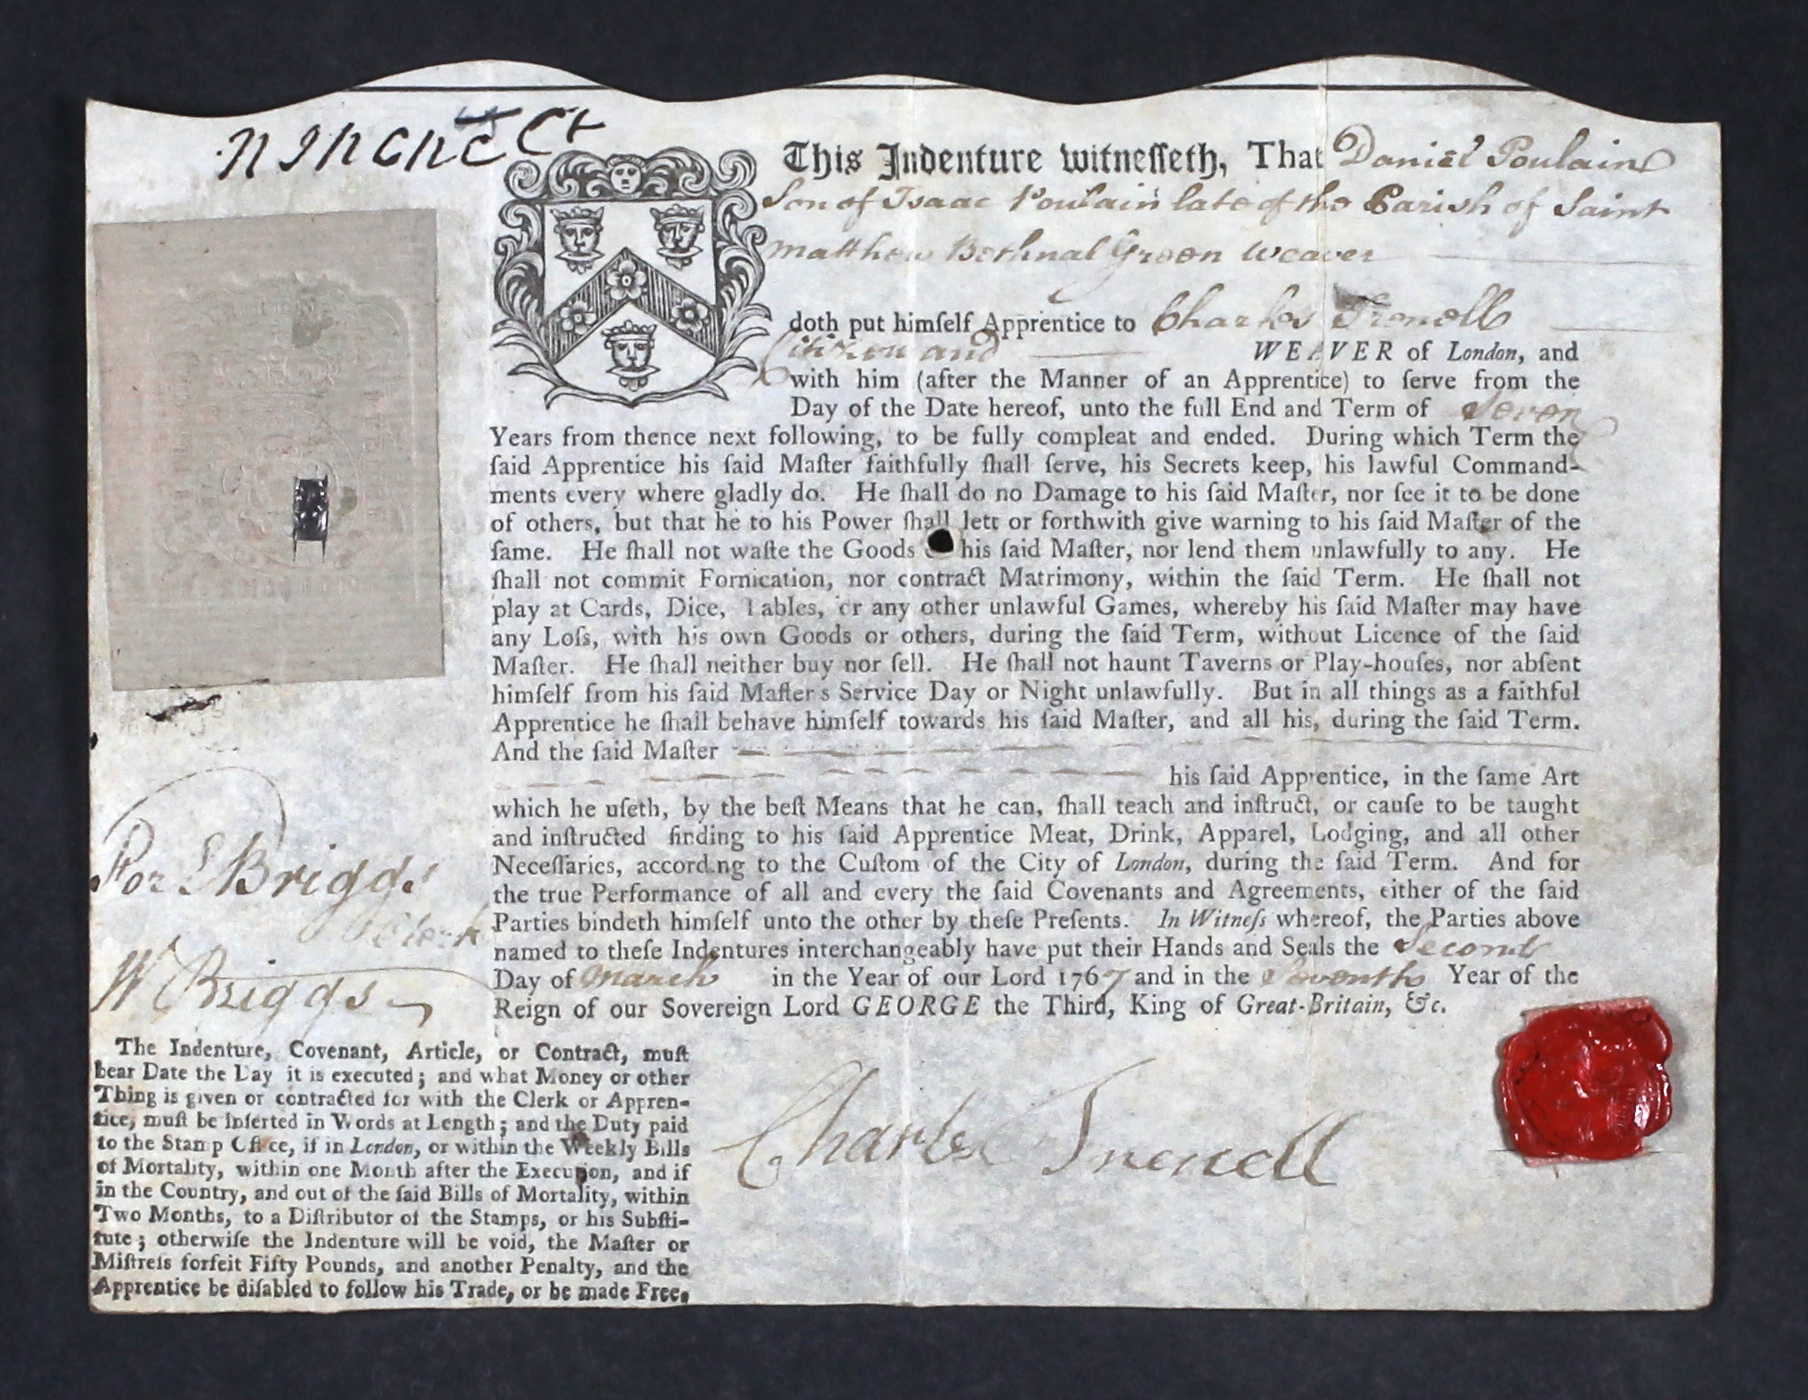 This Indenture witneſſeth, That Daniel Poulain
Son of Isaac Poulain late of the Parish of Saint
Matthew Bethnal Green Weaver
doth put himſelf Apprentice to Charles Trenell
Citizen and WEAVER of London, and
with him (after the Manner of an Apprentice) to ſerve from the
Day of the Date hereof, unto the full End and Term of Seven
Years from thence next following, to be fully compleat and ended. During which Term the
ſaid Apprentice his ſaid Maſter faithfully ſhall ſerve, his Secrets keep, his lawful Command-
ments every where gladly do. He ſhall do no Damage to his ſaid Maſter, nor ſee it to be done
of others, but that he to his Power ſhall lett or forthwith give warning to his ſaid Maſter of the
ſame. He ſhall not waſte the Goods his ſaid Maſter, nor lend them unlawfully to any. He
ſhall not commit Fornication, nor contract Matrimony, within the ſaid Term. He ſhall not
play at Cards, Dice, Tables, or any other unlawful Games, whereby his ſaid Maſter may have
any Loſs, with his own Goods or others, during the ſaid Term, without Licence of the ſaid
Maſter. He ſhall neither buy nor ſell. He ſhall not haunt Taverns or Play-houſes, nor abſent
himſelf from his ſaid Maſters Service Day or Night unlawfully. But in all things as a faithful
Apprentice he ſhall behave himſelf towards his ſaid Maſter, and all his, during the ſaid Term.
And the ſaid Maſter
his ſaid Apprentice, in the ſame Art
which he uſeth, by the beſt Means that he can, ſhall teach and inſtruct, or cauſe to be taught
and inſtructed finding to his ſaid Apprentice Meat, Drink, Apparel, Lodging, and all other
Neceſſaries, according to the Cuſtom of the City of London, during the ſaid Term. And for
the true Performance of all and every the ſaid Covenants and Agreements, either of the ſaid
Parties bindeth himſelf unto the other by theſe Preſents. In Witneſs whereof, the Parties above
named to theſe Indentures interchangeably have put their Hands and Seals the Second
Day of March in the Year of our Lord 1767 and in the Seventh Year of the
Reign of our Sovereign Lord GEORGE the Third, King of Great-Britain, &c.
For E Briggs
Clerk
W Briggs
The Indenture, Covenant, Article, or Contract, muſt
bear Date the Day it is executed; and what Money or other
Thing is given or contracted for with the Clerk or Appren-
tice, muſt be inſerted in Words at Length; and the Duty paid
to the Stamp Office, if in London, or within the Weekly Bills
of Mortality, within one Month after the Execution, and if
in the Country, and out of the ſaid Bills of Mortality, within
Two Months, to a Diſtributor of the Stamps, or his Subſti-
tute; otherwiſe the Indenture will be void, the Maſter or
Miſtreſs forfeit Fifty Pounds, and another Penalty, and the
Apprentice be diſabled to follow his Trade, or be made Free.
Charles Trenell